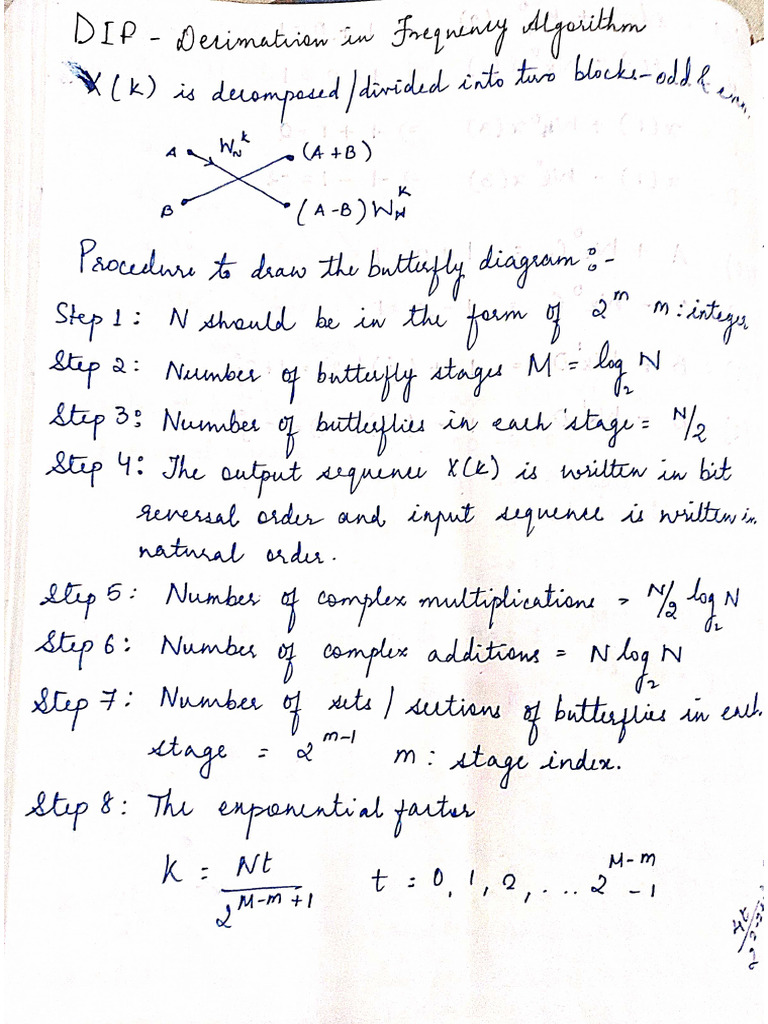 DIF - Decimation in Frequency Algorithm
X(k) is decomposed/divided into two blocks-odd & even.
A W_N^k (A+B)
B (A-B) W_N^k
Procedure to draw the butterfly diagram :-
Step 1: N should be in the form of 2^m m: integer
Step 2: Number of butterfly stages M = log_2 N
Step 3: Number of butterflies in each stage = N/2
Step 4: The output sequence X(k) is written in bit
reversal order and input sequence is written in
natural order.
Step 5: Number of complex multiplications = N/2 log_2 N
Step 6: Number of complex additions = N log_2 N
Step 7: Number of sets / sections of butterflies in each
stage = 2^{m-1} m: stage index.
Step 8: The exponential factor
k = Nt / 2^{M-m+1} t = 0, 1, 2, ... 2^{M-m} - 1